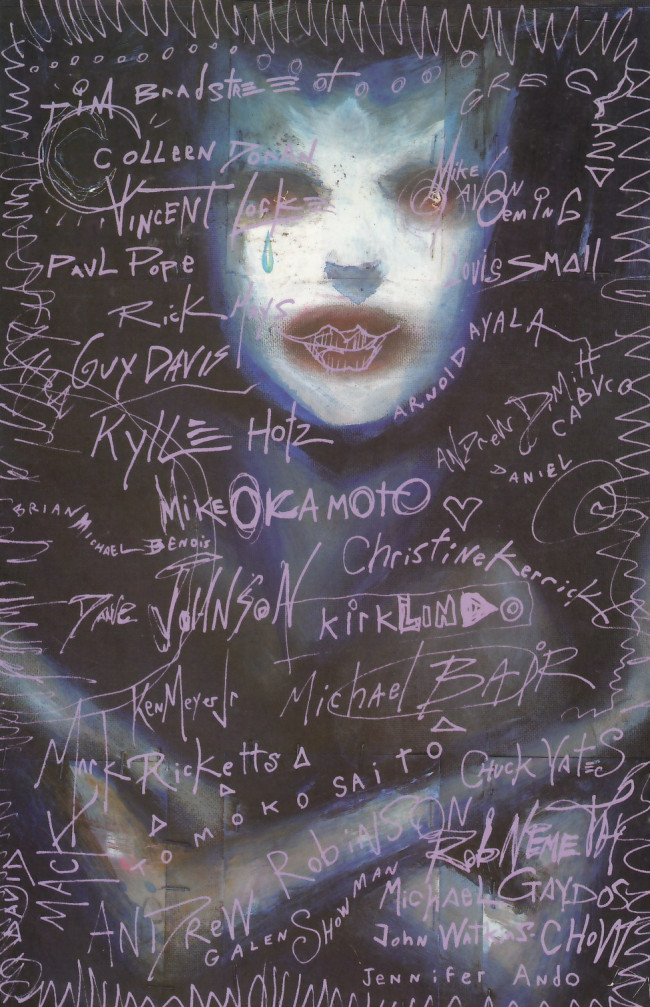 Tim Bradstreet
GREG LAND
COLLEEN DORAN
Mike AVON OEMING
VINCENT Locke
PAUL POPE
LOUIS SMALL
Rick MAYS
ARNOLD AYALA
GUY DAVIS
ANDREW DIMITT
KYLLE HOTZ
DANIEL CABUCO
MIKE OKAMOTO
BRIAN MICHAEL BENDIS
Christine Kerrick
DAVE JOHNSON
Kirk LINDO
Michael BAIR
Ken Meyer Jr
Mark Ricketts
TOMOKO SAITO
CHUCK YATES
DAVID MACK
ANDREW RobiNSON
Rob NEMETH
GALEN SHOWMAN
MICHAEL GAYDOS
John WATKINS-CHOW
Jennifer Ando